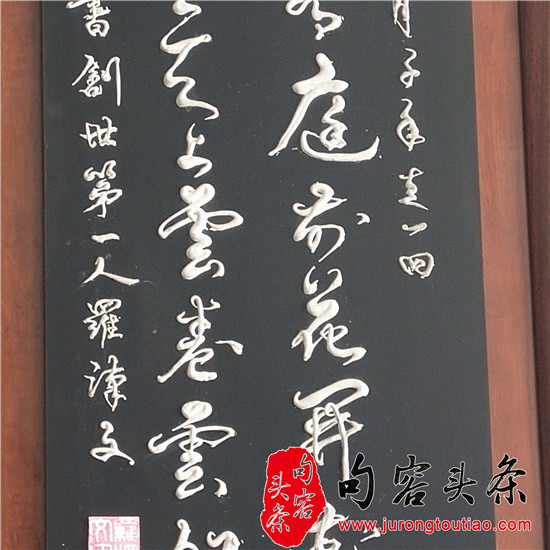 一回
庭前花開
天上雲卷雲
書創世第一人羅
句容头条
句容头条
www.jurongtoutiao.com